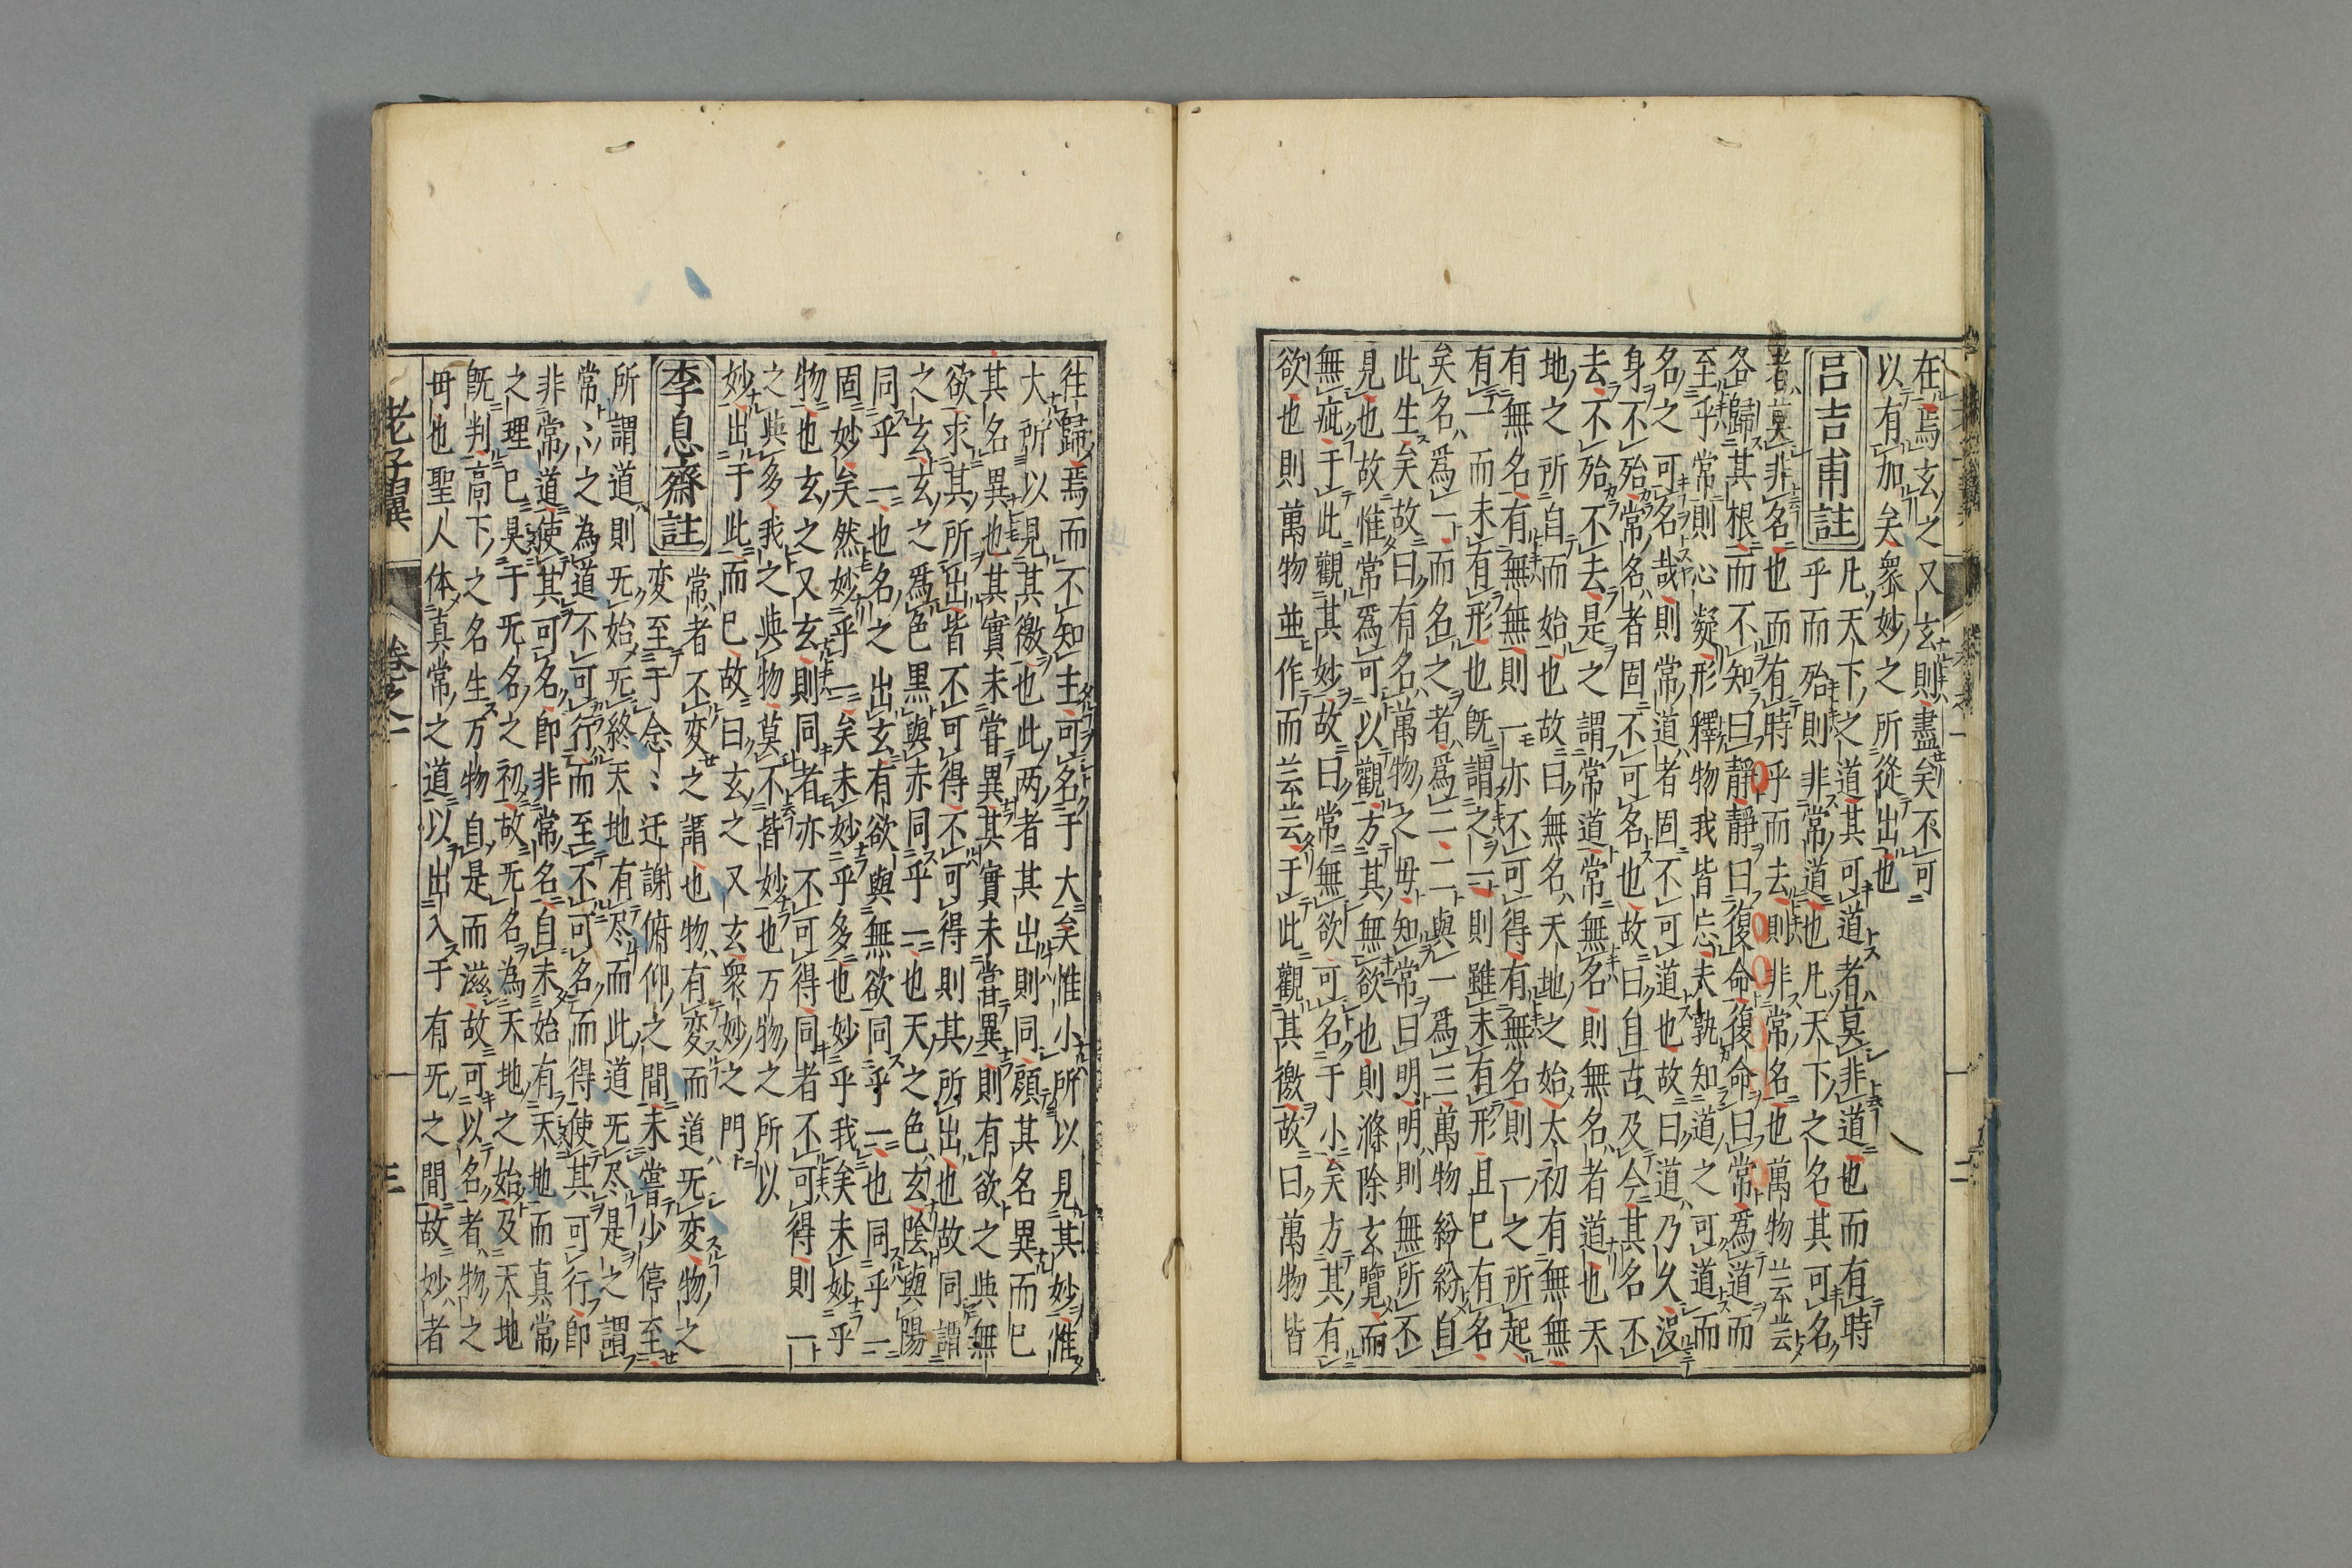 在焉玄之又玄則盡矣不可
以有加矣衆妙之所從出也
呂吉甫註
凡天下之道其可道者莫非道也而有時
乎而殆則非常道也凡天下之名其可名
者莫非名也而有時乎而去則非常名也萬物芸芸
各歸其根而不知曰靜靜曰復命復命曰常爲道而
至乎常則心凝形釋物我皆忘夫孰知道之可道而
名之可名哉則常道者固不可道也故曰道乃久沒
身不殆常名者固不可名也故曰自古及今其名不
去不殆不去是之謂常道常無名則無名者道也天
地之所自而始也故曰無名天地之始太初有無無
有無名有無無則一亦不可得有無名則一之所起
有一而未有形也旣謂之一則雖未有形且已有名
矣名爲一而名之者爲二二與一爲三萬物紛紛自
此生矣故曰有名萬物之母知常曰明明則無所不
見也故惟常爲可以觀方其無欲也則滌除玄覽而
無疵于此觀其妙故曰常無欲可名于小矣方其有
欲也則萬物並作而芸芸于此觀其徼故曰萬物皆
往歸焉而不知主可名于大矣惟小所以見其妙惟
大所以見其徼也此两者其出則同顔其名異而已
其名異也其實未嘗異其實未嘗異則有欲之與無
欲求其所出皆不可得不可得則其所出也故同謂
之玄玄之爲色黒與赤同乎一也天之色玄陰與陽
同乎一也名之出玄有欲與無欲同乎一也同乎一
固妙矣然妙乎一矣未妙乎多也妙乎我矣未妙乎
物也玄之又玄則同者亦不可得同者不可得則一
之與多我之與物莫不皆妙也万物之所以
妙出于此而已故曰玄之又玄衆妙之門
李息齋註
常者不変之謂也物有変而道无変物之
変至于念〻迁謝俯仰之間未嘗少停至
所謂道則无始无終天地有尽而此道无尽是之謂
常〻之為道不可行而至不可名而得使其可行即
非常道使其可名即非常名自未始有天地而真常
之理已具于无名之初故无名為天地之始及天地
旣判高下之名生万物自是而滋故可以名者物之
母也聖人体真常之道以出入于有无之間故妙者
老子翼 卷之一 三